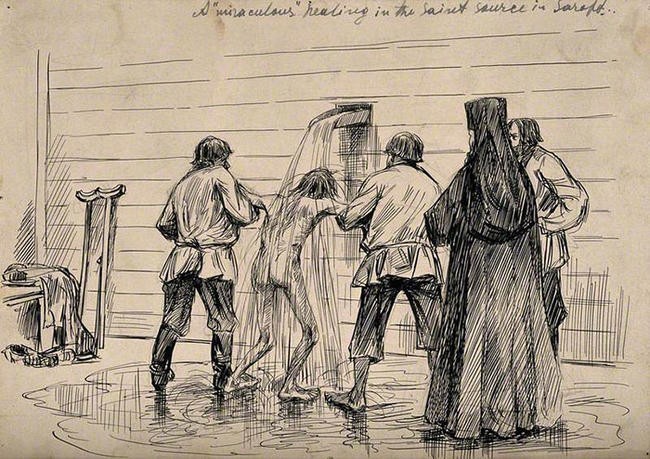 A "miraculous" healing in the Saint source in Saroff..